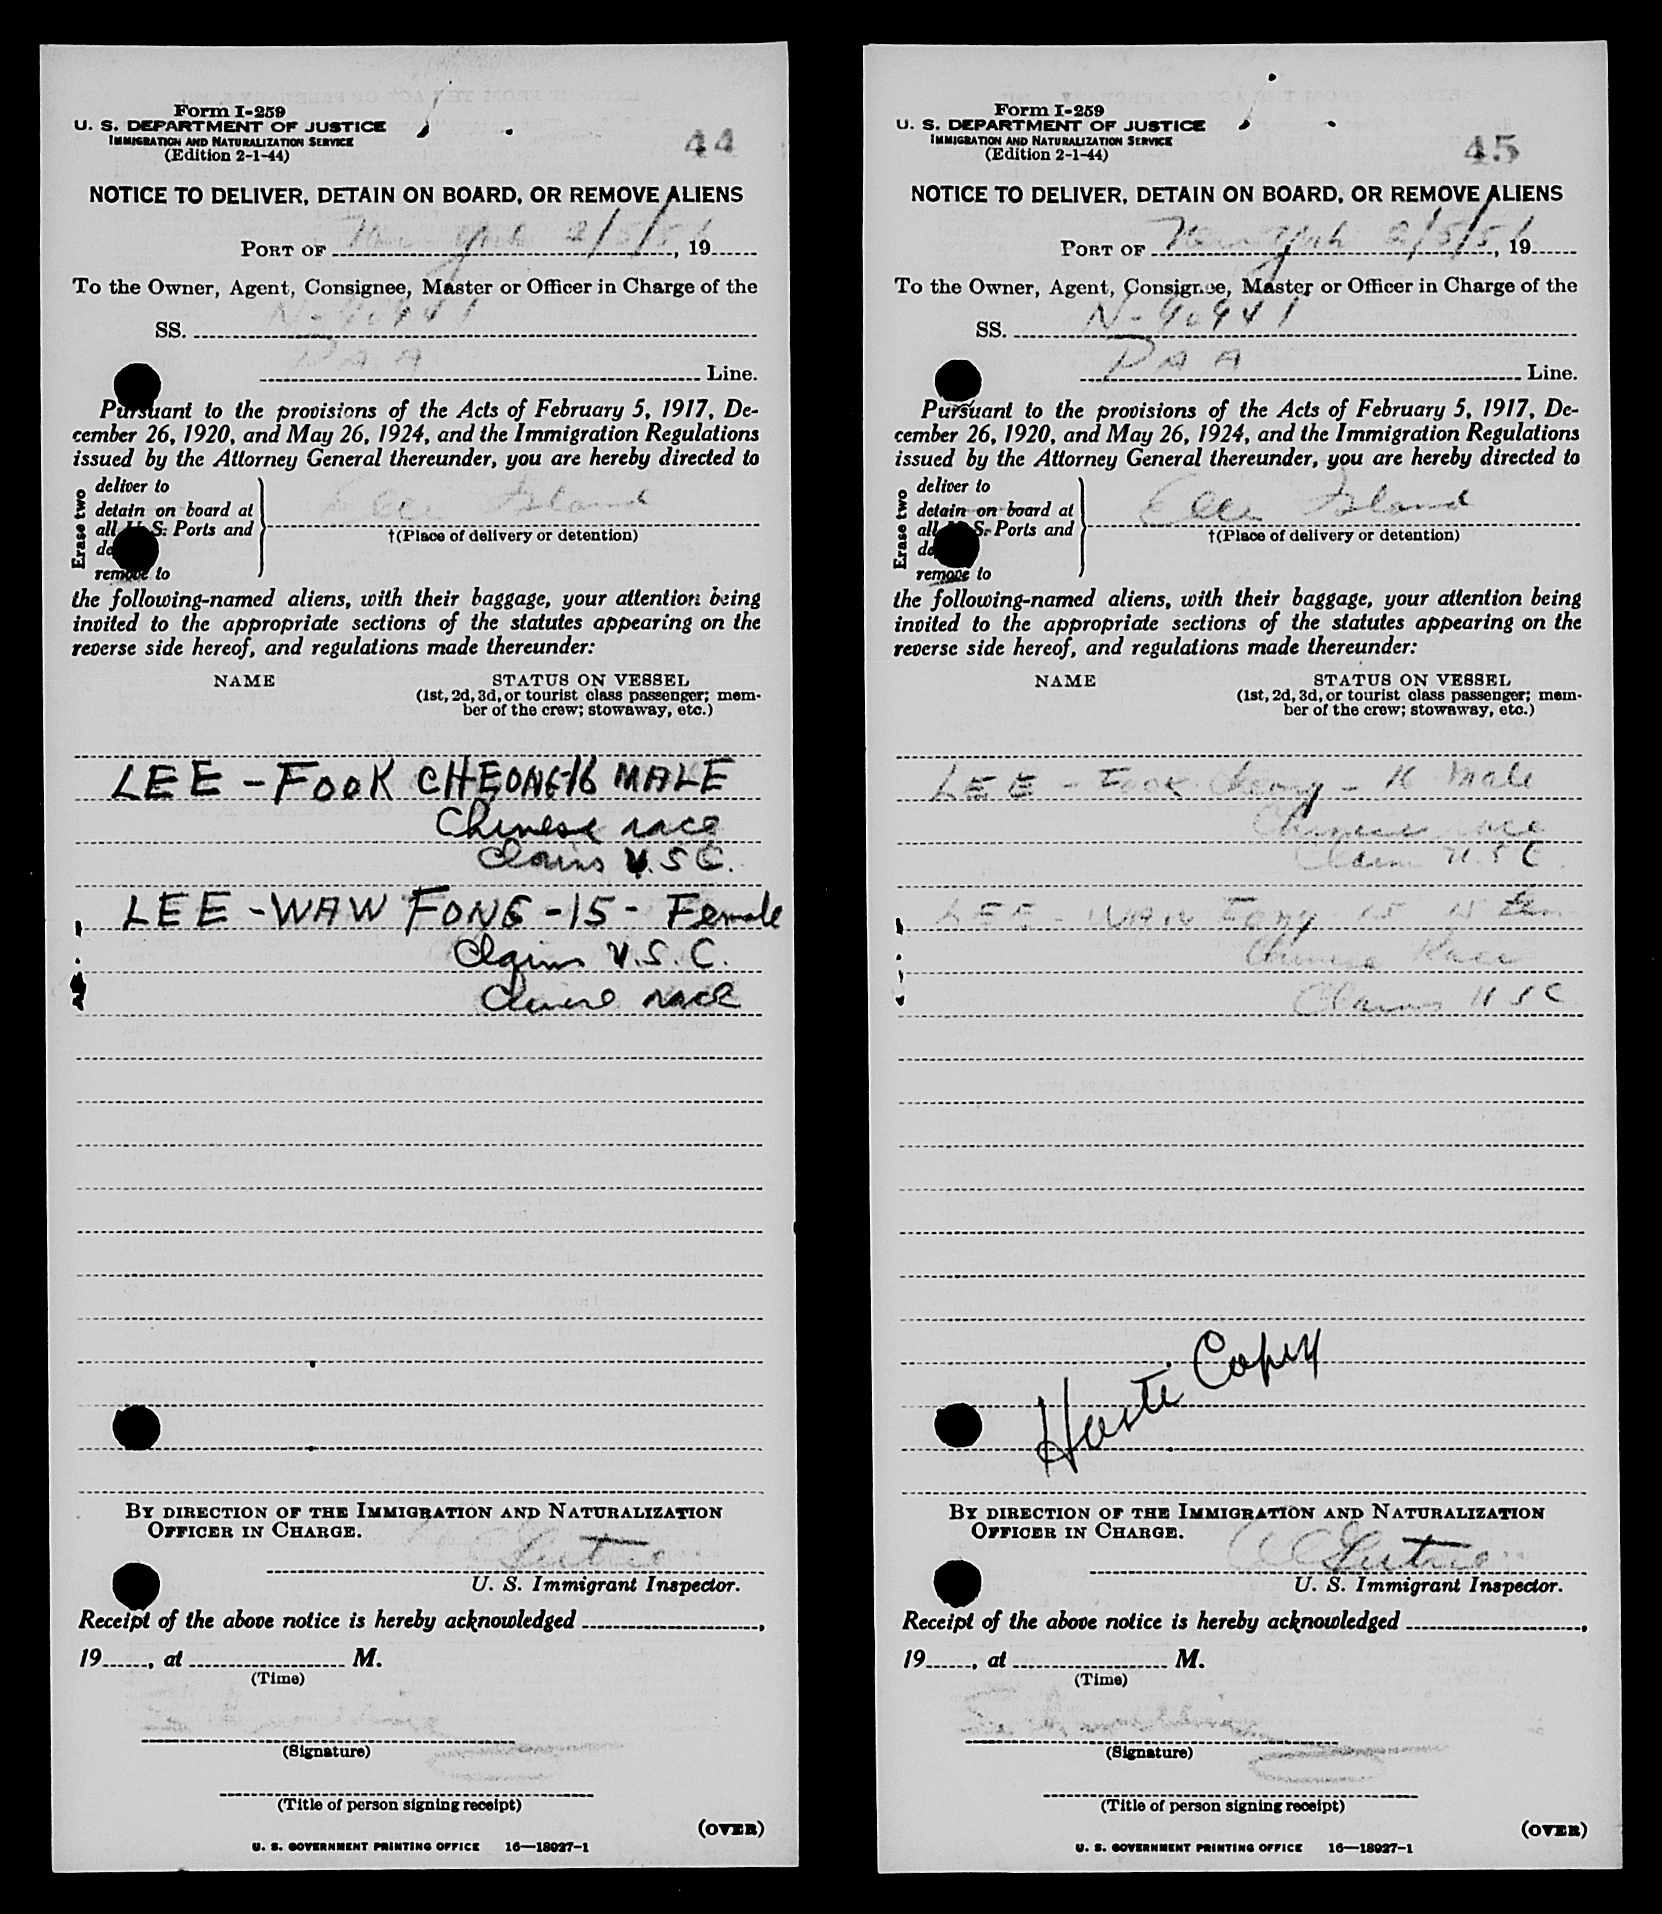 Form I-259
U. S. DEPARTMENT OF JUSTICE
IMMIGRATION AND NATURALIZATION SERVICE
(Edition 2-1-44)
44
NOTICE TO DELIVER, DETAIN ON BOARD, OR REMOVE ALIENS
PORT OF New York 2/5/51, 19
To the Owner, Agent, Consignee, Master or Officer in Charge of the
SS. N-90941
PAA Line.
Pursuant to the provisions of the Acts of February 5, 1917, De-
cember 26, 1920, and May 26, 1924, and the Immigration Regulations
issued by the Attorney General thereunder, you are hereby directed to
Erase two
deliver to
detain on board at
all U. S. Ports and
remove to
Island
†(Place of delivery or detention)
the following-named aliens, with their baggage, your attention being
invited to the appropriate sections of the statutes appearing on the
reverse side hereof, and regulations made thereunder:
NAME STATUS ON VESSEL
(1st, 2d, 3d, or tourist class passenger; mem-
ber of the crew; stowaway, etc.)
LEE - FOOK CHEONG-16 MALE
Chinese race
Claims U.S.C.
LEE - WAW FONG - 15 - Female
Claims U.S.C.
Chinese race
BY DIRECTION OF THE IMMIGRATION AND NATURALIZATION
OFFICER IN CHARGE.
U. S. Immigrant Inspector.
Receipt of the above notice is hereby acknowledged ,
19 , at M.
(Time)
(Signature)
(Title of person signing receipt)
(OVER)
U. S. GOVERNMENT PRINTING OFFICE 16—18927-1
Form I-259
U. S. DEPARTMENT OF JUSTICE
IMMIGRATION AND NATURALIZATION SERVICE
(Edition 2-1-44)
45
NOTICE TO DELIVER, DETAIN ON BOARD, OR REMOVE ALIENS
PORT OF New York 2/5/51, 19
To the Owner, Agent, Consignee, Master or Officer in Charge of the
SS. N-90941
PAA Line.
Pursuant to the provisions of the Acts of February 5, 1917, De-
cember 26, 1920, and May 26, 1924, and the Immigration Regulations
issued by the Attorney General thereunder, you are hereby directed to
Erase two
deliver to
detain on board at
all U. S. Ports and
remove to
Island
†(Place of delivery or detention)
the following-named aliens, with their baggage, your attention being
invited to the appropriate sections of the statutes appearing on the
reverse side hereof, and regulations made thereunder:
NAME STATUS ON VESSEL
(1st, 2d, 3d, or tourist class passenger; mem-
ber of the crew; stowaway, etc.)
LEE - FOOK Cheong - 16 Male
Chinese race
Claim U.S.C.
LEE - WAW Fong 15 15 Fem
Chinese Race
Claims U S C
Copy
BY DIRECTION OF THE IMMIGRATION AND NATURALIZATION
OFFICER IN CHARGE.
U. S. Immigrant Inspector.
Receipt of the above notice is hereby acknowledged ,
19 , at M.
(Time)
(Signature)
(Title of person signing receipt)
(OVER)
U. S. GOVERNMENT PRINTING OFFICE 16—18927-1